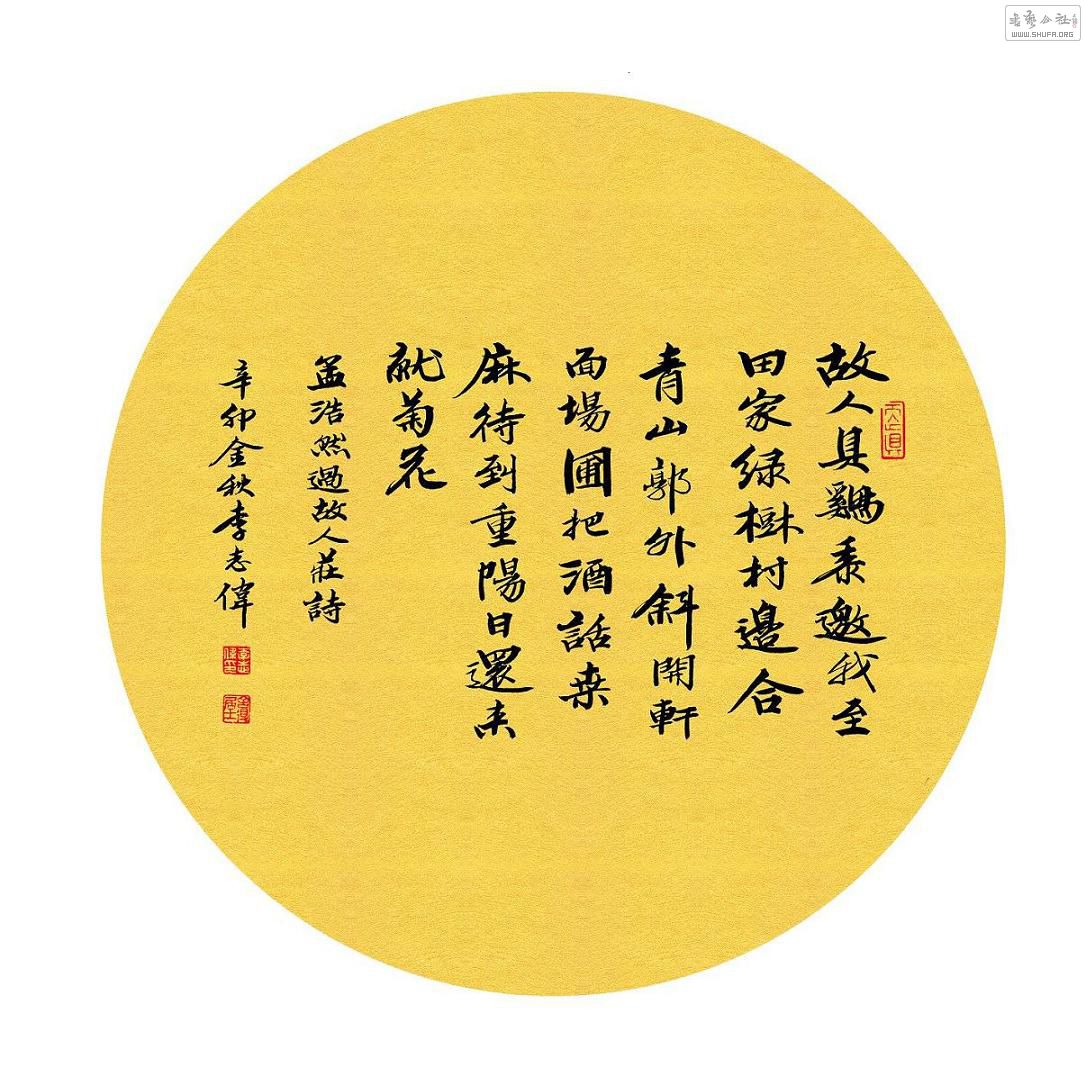 故人具鷄黍邀我至
田家緑樹村邊合
青山郭外斜開軒
面場圃把酒話桒
麻待到重陽日還来
就菊花
孟浩然過故人莊詩
辛卯金秋李志偉
天真
李志偉印
WWW.SHUFA.ORG